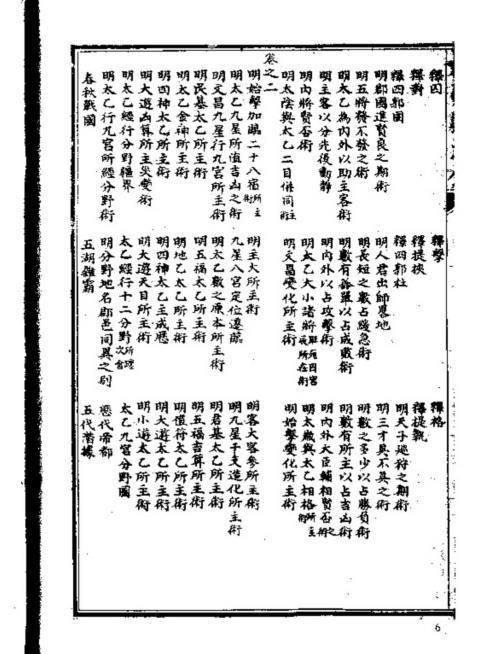 釋囚　釋擊　釋格
釋對　釋提挾　釋提執
釋四郭固　釋四郭杜　明天子巡狩之期術
明郡國進賢良之期術　明人君出師畧地　明三才具不具之術
明五將發不發之術　明長短之數占緩急術　明數之多少以占勝負術
明太乙為內外以助主客術　明數有以占成敗術　明數有所主以占吉凶術
明主客以分先後動靜　明內外以占攻擊術　明內外大臣輔相賢否之術
明內將賢否術　明太乙大小諸將四宮所在術　明太歲與太乙相格所主術
明太陰與太乙二目併同所主術　明文昌變化所主術　明始擊變化所主術
卷之二
明始擊加臨二十八宿所主術　明主大所主術　明客大客參所主術
明太乙九星所值吉凶之術　九星八宮定位臨　明九星干支造化所主術
明文昌九星行九宮所主術　明太乙數之原本所主術　明君基太乙所主術
明民基太乙所主術　明五福太乙所主術　明五福吉算所主術
明太乙金神所主術　明地乙太乙所主術　明值符太乙所主術
明四神太乙所主術　明四神太乙主成應　明大遊太乙所主術
明大遊凶算所主災變術　明大遊天目所主術　明小遊太乙所主術
明太乙經行分野疆界　太乙經行十二分野所理次舍　太乙九宮分野圖
明太乙行九宮所經分野術　明分野地名郡邑同異之別　歷代帝都
春秋戰國　五湖雜霸　五代潛據
6